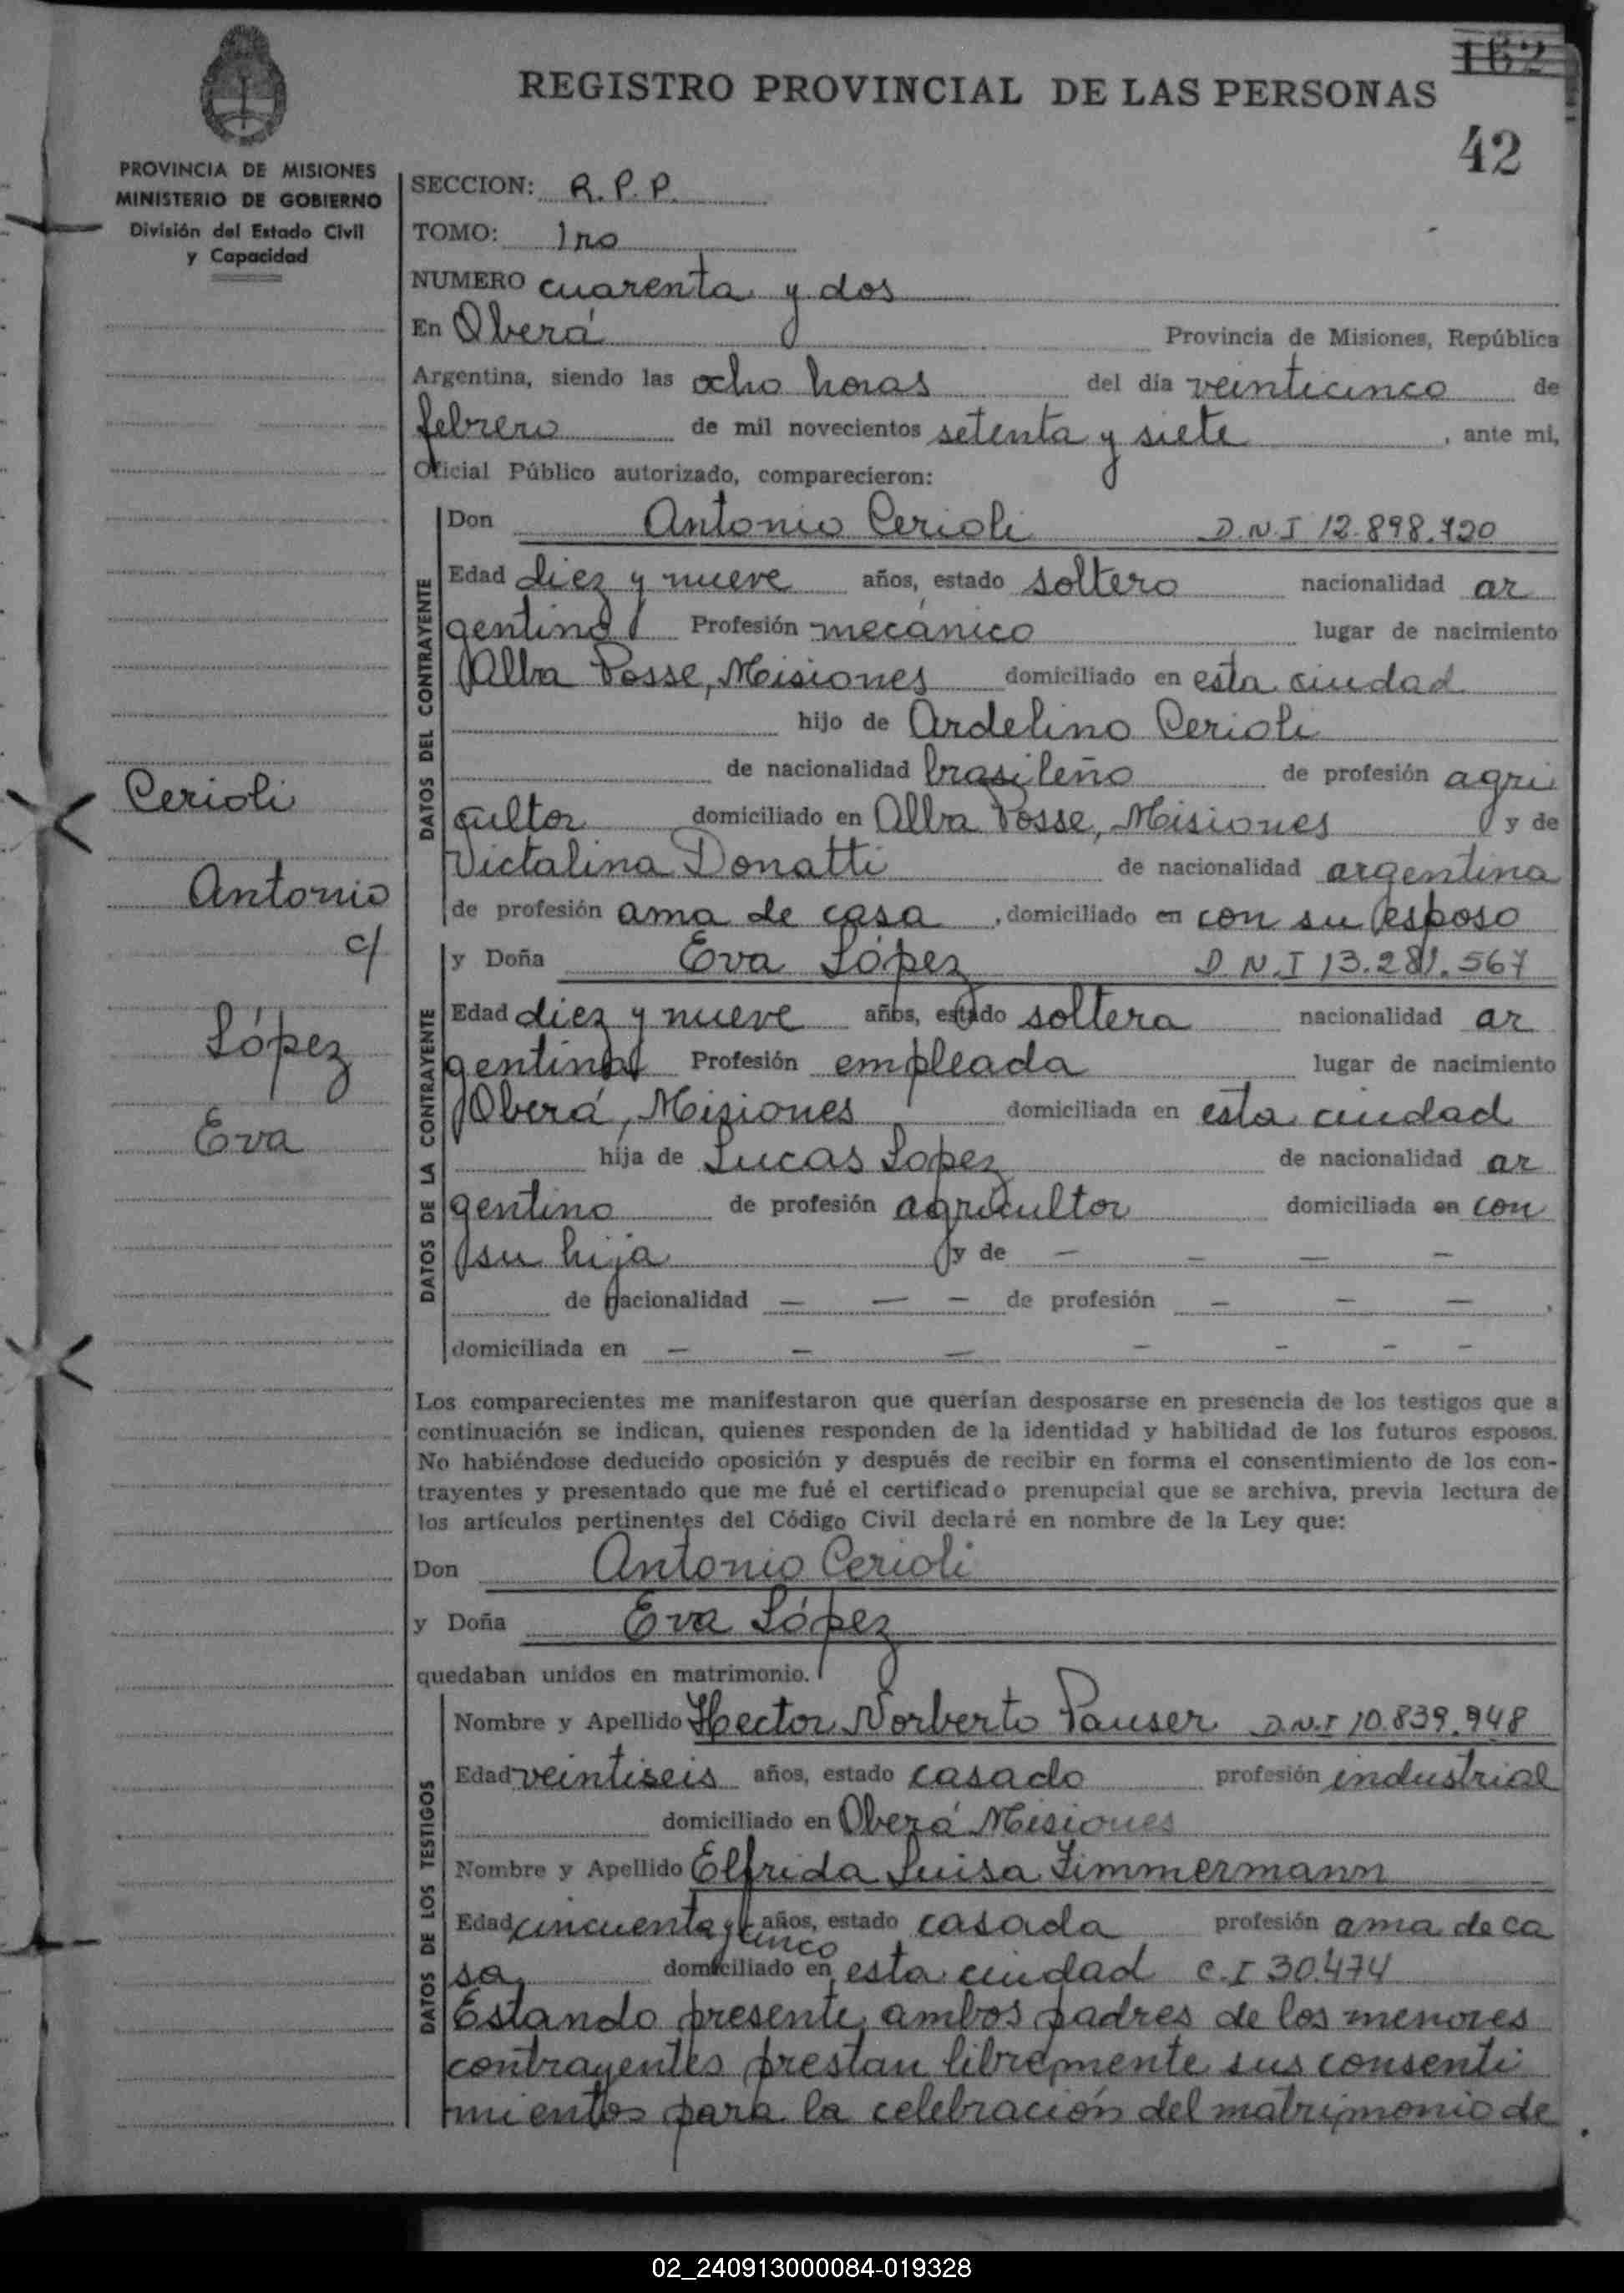 162
REGISTRO PROVINCIAL DE LAS PERSONAS
42
PROVINCIA DE MISIONES
MINISTERIO DE GOBIERNO
División del Estado Civil
y Capacidad
SECCION: R.P.P.
TOMO: 1ro
NUMERO cuarenta y dos
En Oberá Provincia de Misiones, República
Argentina, siendo las ocho horas del día veinticinco de
febrero de mil novecientos setenta y siete, ante mi,
Oficial Público autorizado, comparecieron:
DATOS DEL CONTRAYENTE
Don Antonio Cerioli D.N.I 12.898.720
Edad diez y nueve años, estado soltero nacionalidad ar
gentino Profesión mecánico lugar de nacimiento
Alba Posse, Misiones domiciliado en esta ciudad
hijo de Ardelino Cerioli
de nacionalidad brasileño de profesión agri
cultor domiciliado en Alba Posse, Misiones y de
Victalina Donatti de nacionalidad argentina
de profesión ama de casa, domiciliado en con su esposo
Cerioli
Antonio
c/
López
Eva
DATOS DE LA CONTRAYENTE
y Doña Eva López D.N.I 13.281.567
Edad diez y nueve años, estado soltera nacionalidad ar
gentina Profesión empleada lugar de nacimiento
Oberá, Misiones domiciliada en esta ciudad
hija de Lucas Lopez de nacionalidad ar
gentino de profesión agricultor domiciliada en con
su hija y de — — — —
de nacionalidad — — — de profesión — — —,
domiciliada en — — — — — — —
Los comparecientes me manifestaron que querían desposarse en presencia de los testigos que a
continuación se indican, quienes responden de la identidad y habilidad de los futuros esposos.
No habiéndose deducido oposición y después de recibir en forma el consentimiento de los con-
trayentes y presentado que me fué el certificado prenupcial que se archiva, previa lectura de
los artículos pertinentes del Código Civil declaré en nombre de la Ley que:
Don Antonio Cerioli
y Doña Eva López
quedaban unidos en matrimonio.
DATOS DE LOS TESTIGOS
Nombre y Apellido Hector Norberto Pauser D.N.I 10.839.948
Edad veintiseis años, estado casado profesión industrial
domiciliado en Oberá Misiones
Nombre y Apellido Elfrida Luisa Zimmermann
Edad cincuenta y cinco años, estado casada profesión ama de ca
sa domiciliado en esta ciudad C.I 30.474
Estando presente ambos padres de los menores
contrayentes prestan libremente sus consenti
mientos para la celebración del matrimonio de
02_240913000084-019328